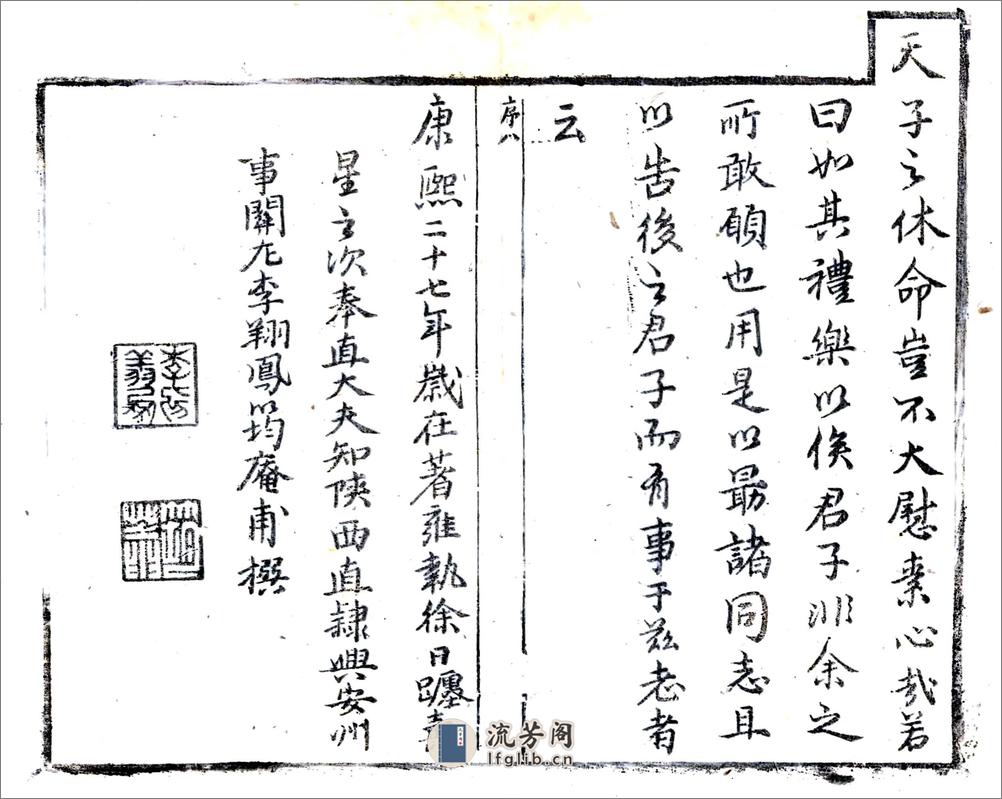 天子之休命豈不大慰素心哉若
曰如其禮樂以俟君子非余之
所敢碩也用是以最諸同志且
以告後之君子而有事于茲者
云
序八
康熙二十七年歲在著雍執徐日躔壽
星之次奉直大夫知陝西直隸興安州
事關左李翔鳳筠庵甫撰
流芳阁
lfglib.cn